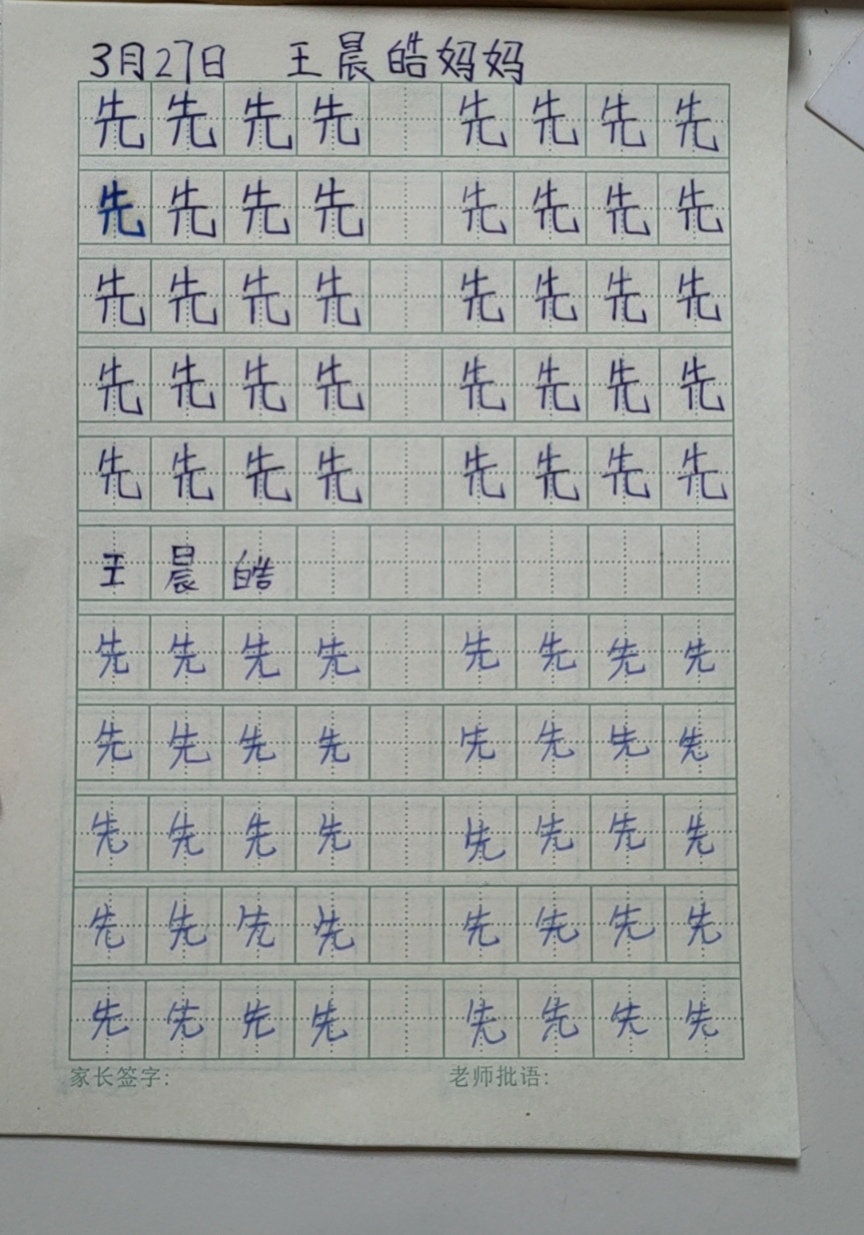 3月27日 王晨皓妈妈
先先先先 先先先先
先先先先 先先先先
先先先先 先先先先
先先先先 先先先先
先先先先 先先先先
王晨皓
先先先先 先先先先
先先先先 先先先先
先先先先 先先先先
先先先先 先先先先
先先先先 先先先先
家长签字: 老师批语: